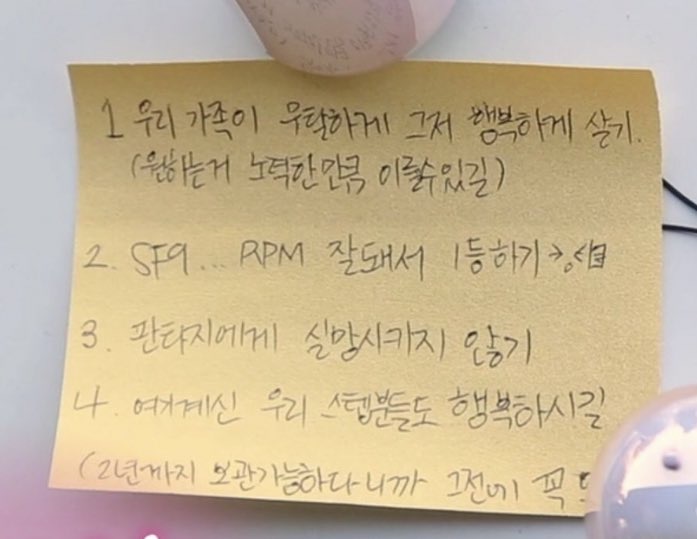 1 우리 가족이 우탁하게 그저 행복하게 살기.
(원하는거 노력한만큼 이룰수있길)
2. SF9... RPM 잘돼서 1등하기→
3. 판타지에게 실망시키지 않기
4. 여기계신 우리 스텝분들도 행복하시길
(2년까지 보관가능하다니까 그전에 꼭